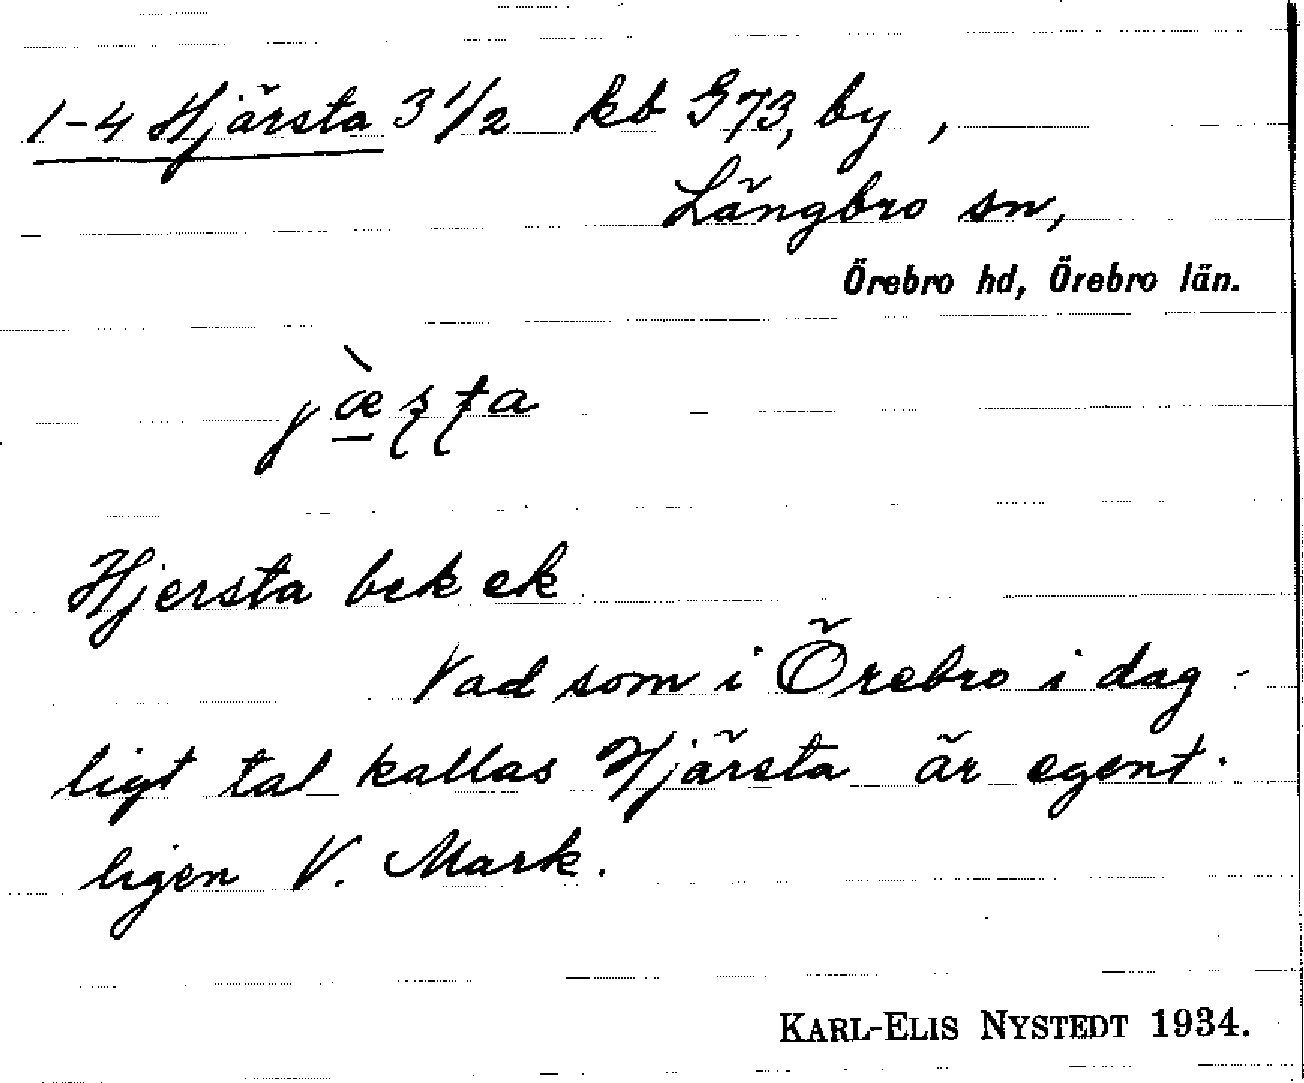 1-4 Hjärsta 3 1/2 kb G73, by,
Längbro sn,
Örebro hd, Örebro län.
jæ̀ʂʈa
Hjersta bek ek
Vad som i Örebro i dag-
ligt tal kallas Hjärsta är egent-
ligen V. Mark.
KARL-ELIS NYSTEDT 1934.